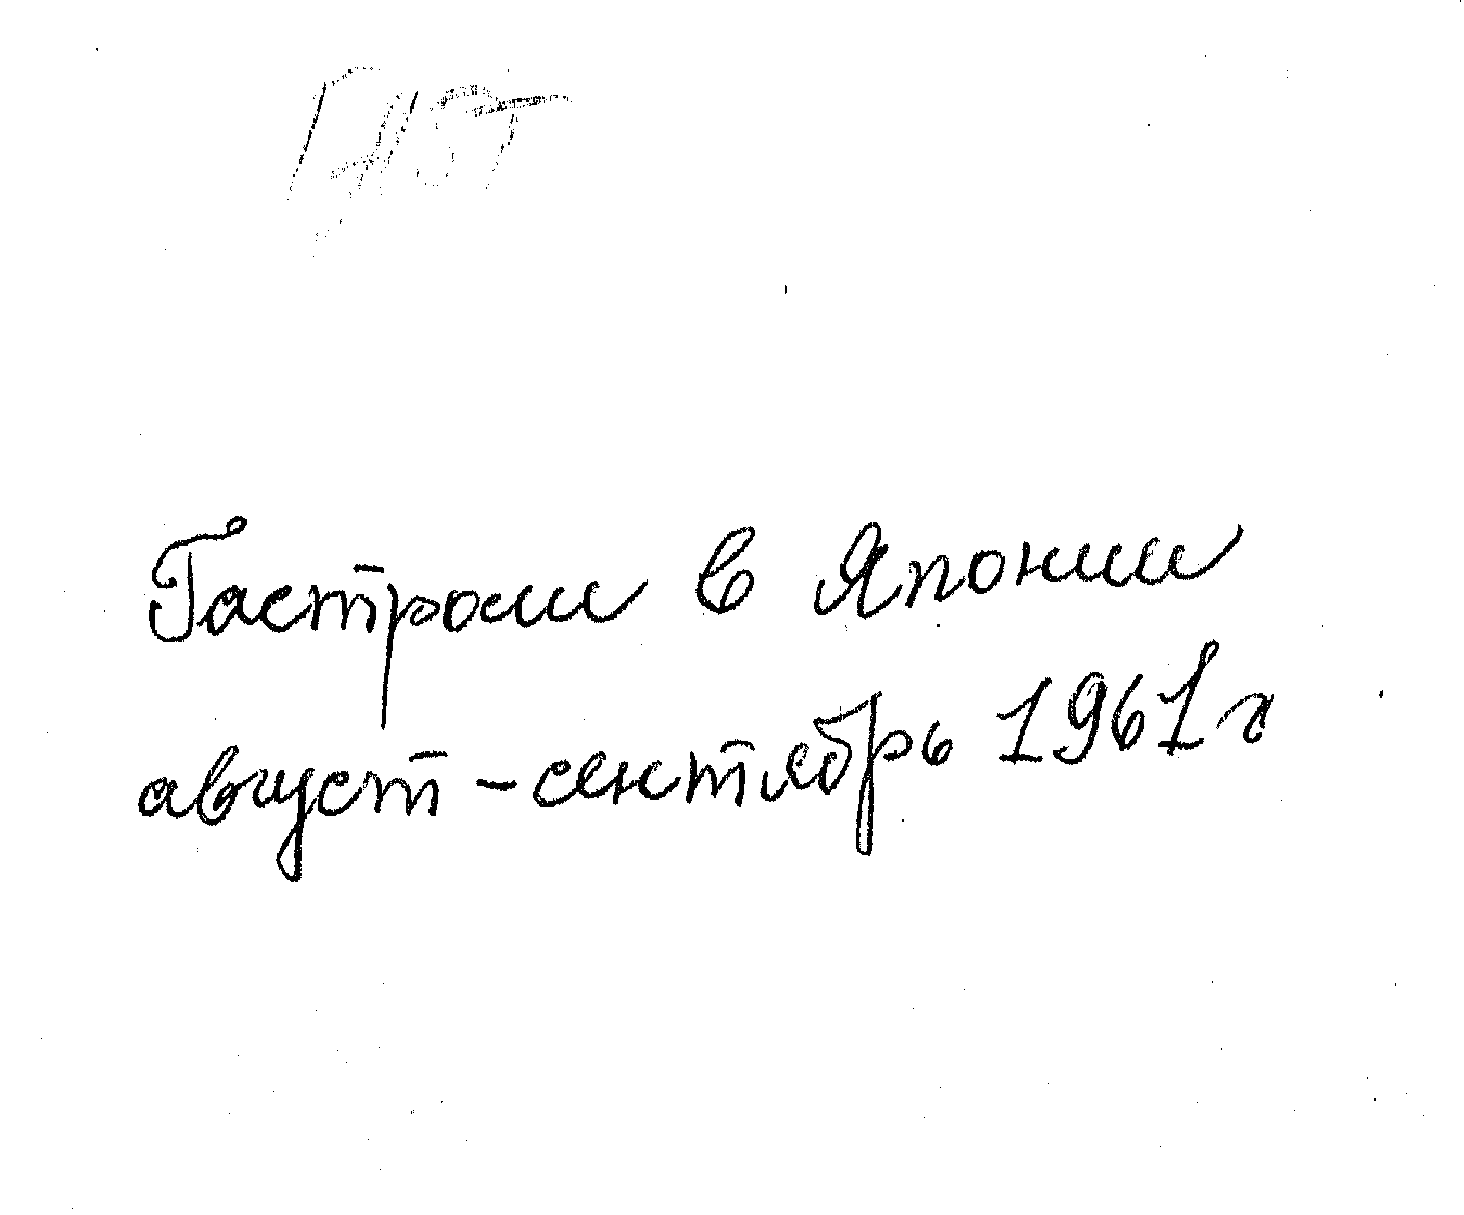 Гастроли в Японии
август - сентябрь 1961 г